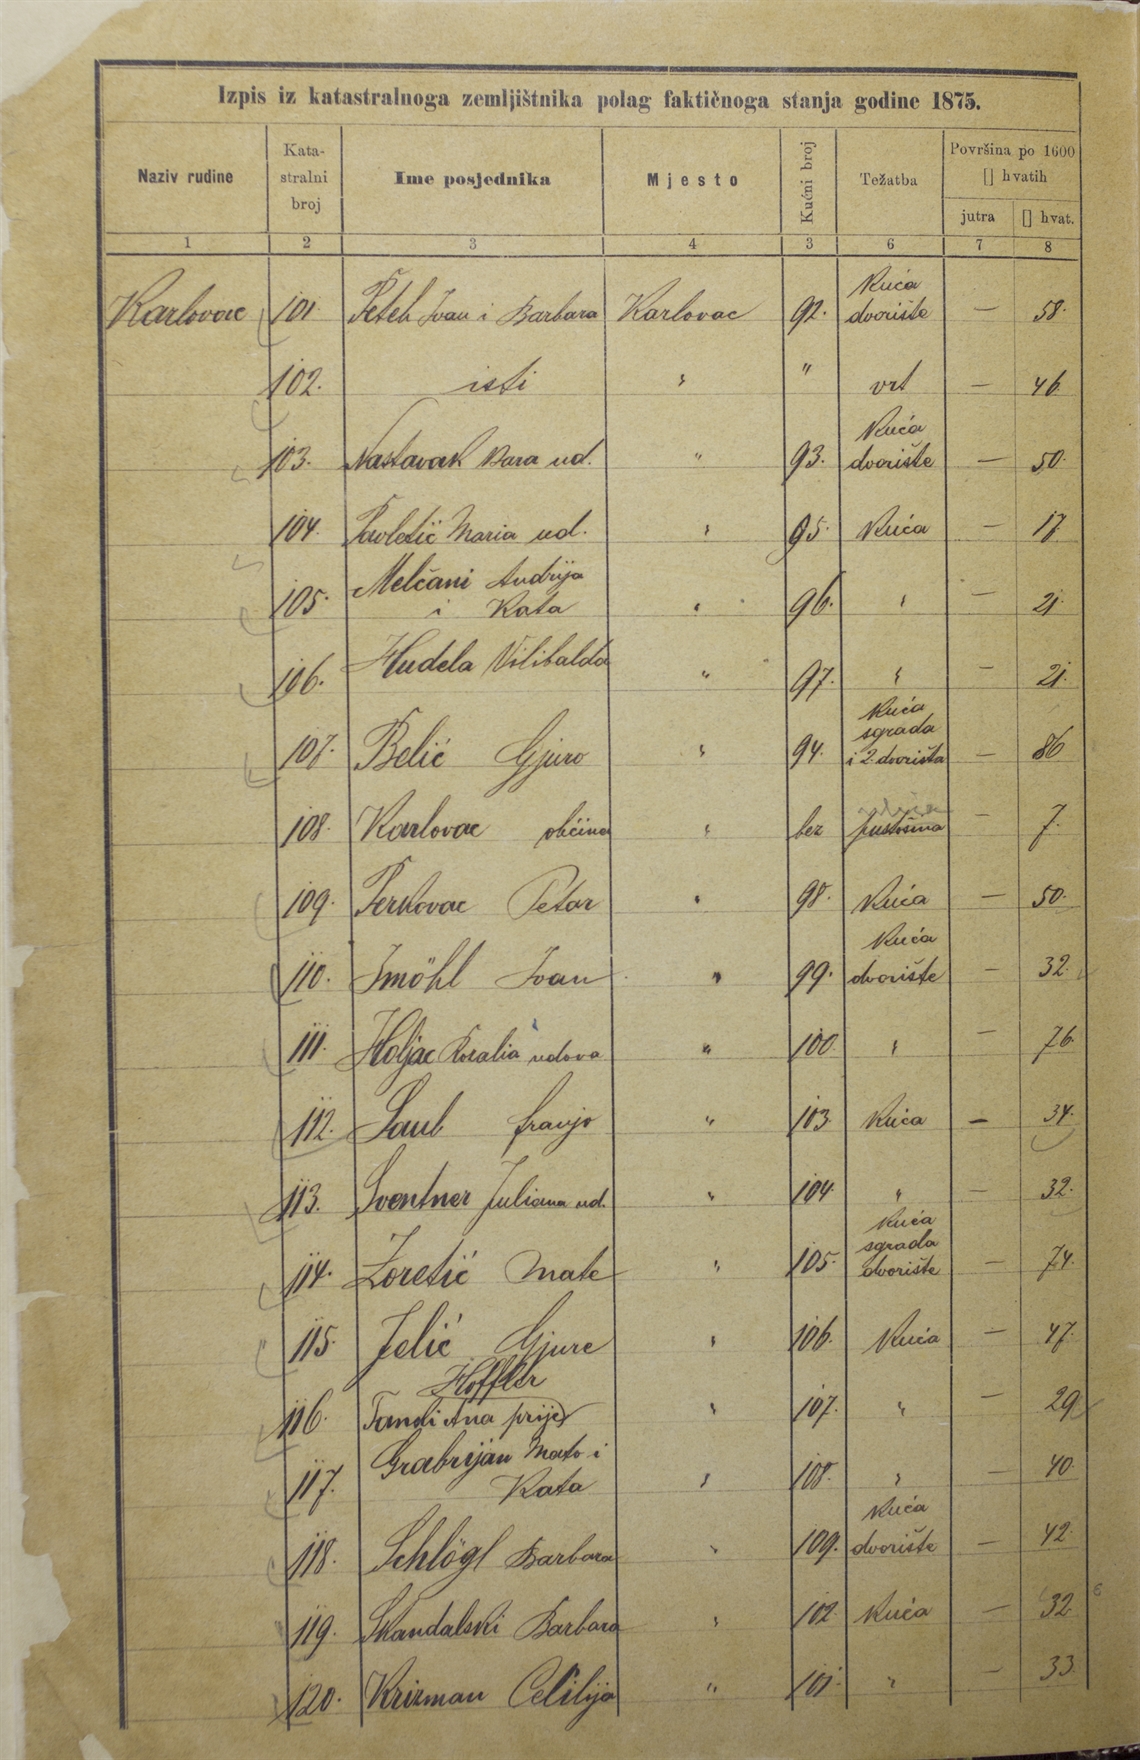 Izpis iz katastralnoga zemljištnika polag faktičnoga stanja godine 1875.
Naziv rudine Kata- stralni broj Ime posjednika Mjesto Kućni broj Težatba Površina po 1600 [] hvatih
jutra [] hvat.
1 2 3 4 3 6 7 8
Kuća
Karlovac 101 Peteh Ivan i Barbara Karlovac 92. dvorište — 58.
102. isti " " vrt — 46
Kuća
103. Nastavak Bara ud. " 93. dvorište — 50.
104. Pavletić Maria ud. " 95. Kuća — 17
Melčani Andrija
105. i Kata " 96. " — 21.
106. Hudela Vilibalda " 97. " — 21.
Kuća
sgrada
107. Belić Gjuro " 94. i 2 dvorišta — 86
108. Karlovac občina " bez pustošina — 7.
109. Perkovac Petar " 98. Kuća — 50.
Kuća
110. Imöhl Ivan " 99. dvorište — 32.
111. Holjac Rosalia udova " 100. " — 76
112. Saub franjo " 103. Kuća — 34.
113. Sventner Juliana ud. " 104 " — 32.
Kuća
sgrada
114. Zoretić Mate " 105. dvorište — 74.
115. Jelić Gjure " 106. Kuća — 47.
Hoffler
116. Ana prije " 107. " — 29
Grabrijan Mato i
117. Kata " 108. " — 40.
Kuća
118. Schlögl Barbara " 109. dvorište — 42
119. Skandalski Barbara " 102 Kuća — 32
120. Krizman Cecilija " 101 " — 33